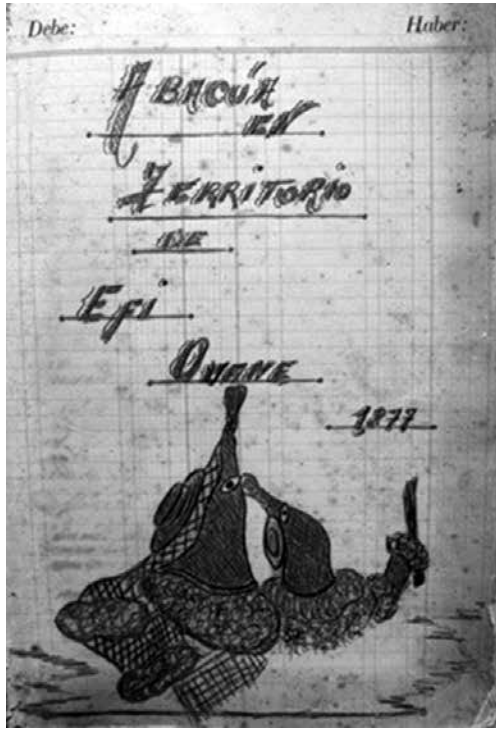 Debe: Haber:
ABACUÁ
EN
TERRITORIO
DE
EFi
OMANE
1877